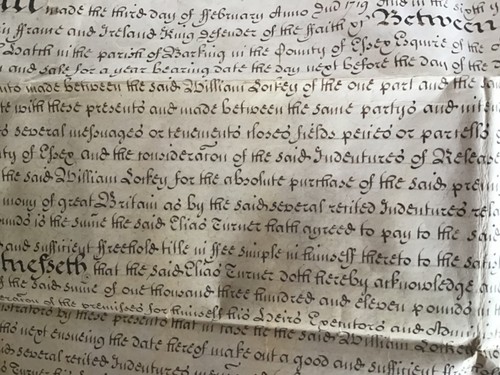 made the third day of ffebruary Anno Dni 1719 And in the sixth
in ffrance and Ireland King defender of the ffaith &c Between
in the parish of Barking in the County of Essex Esquire of the
and sale for a year bearing date the day next before the day of the
made between the said William Lockey of the one part and the
te with these presents and made between the same partys and
several messuages or tenements closes fields peices or parcells
ty of Essex and the consideracon of the said Indentures of Release
the said William Lockey for the absolute purchase of the said
mony of great Brittain as by the said several recited Indentures
is the sume the said Elias Turner hath agreed to pay to the said
and sufficient ffreehold title in ffee simple in himself thereto to the
tnesseth that the said Elias Turner doth hereby acknowledge and
of the said sume of one thousand three hundred and eleven pounds in
of the premisses for himself his Heirs Executors and
by these presents that in case he the said William Lockey
next ensueing the date hereof make out a good and sufficient
said several recited Indentures
Turner his